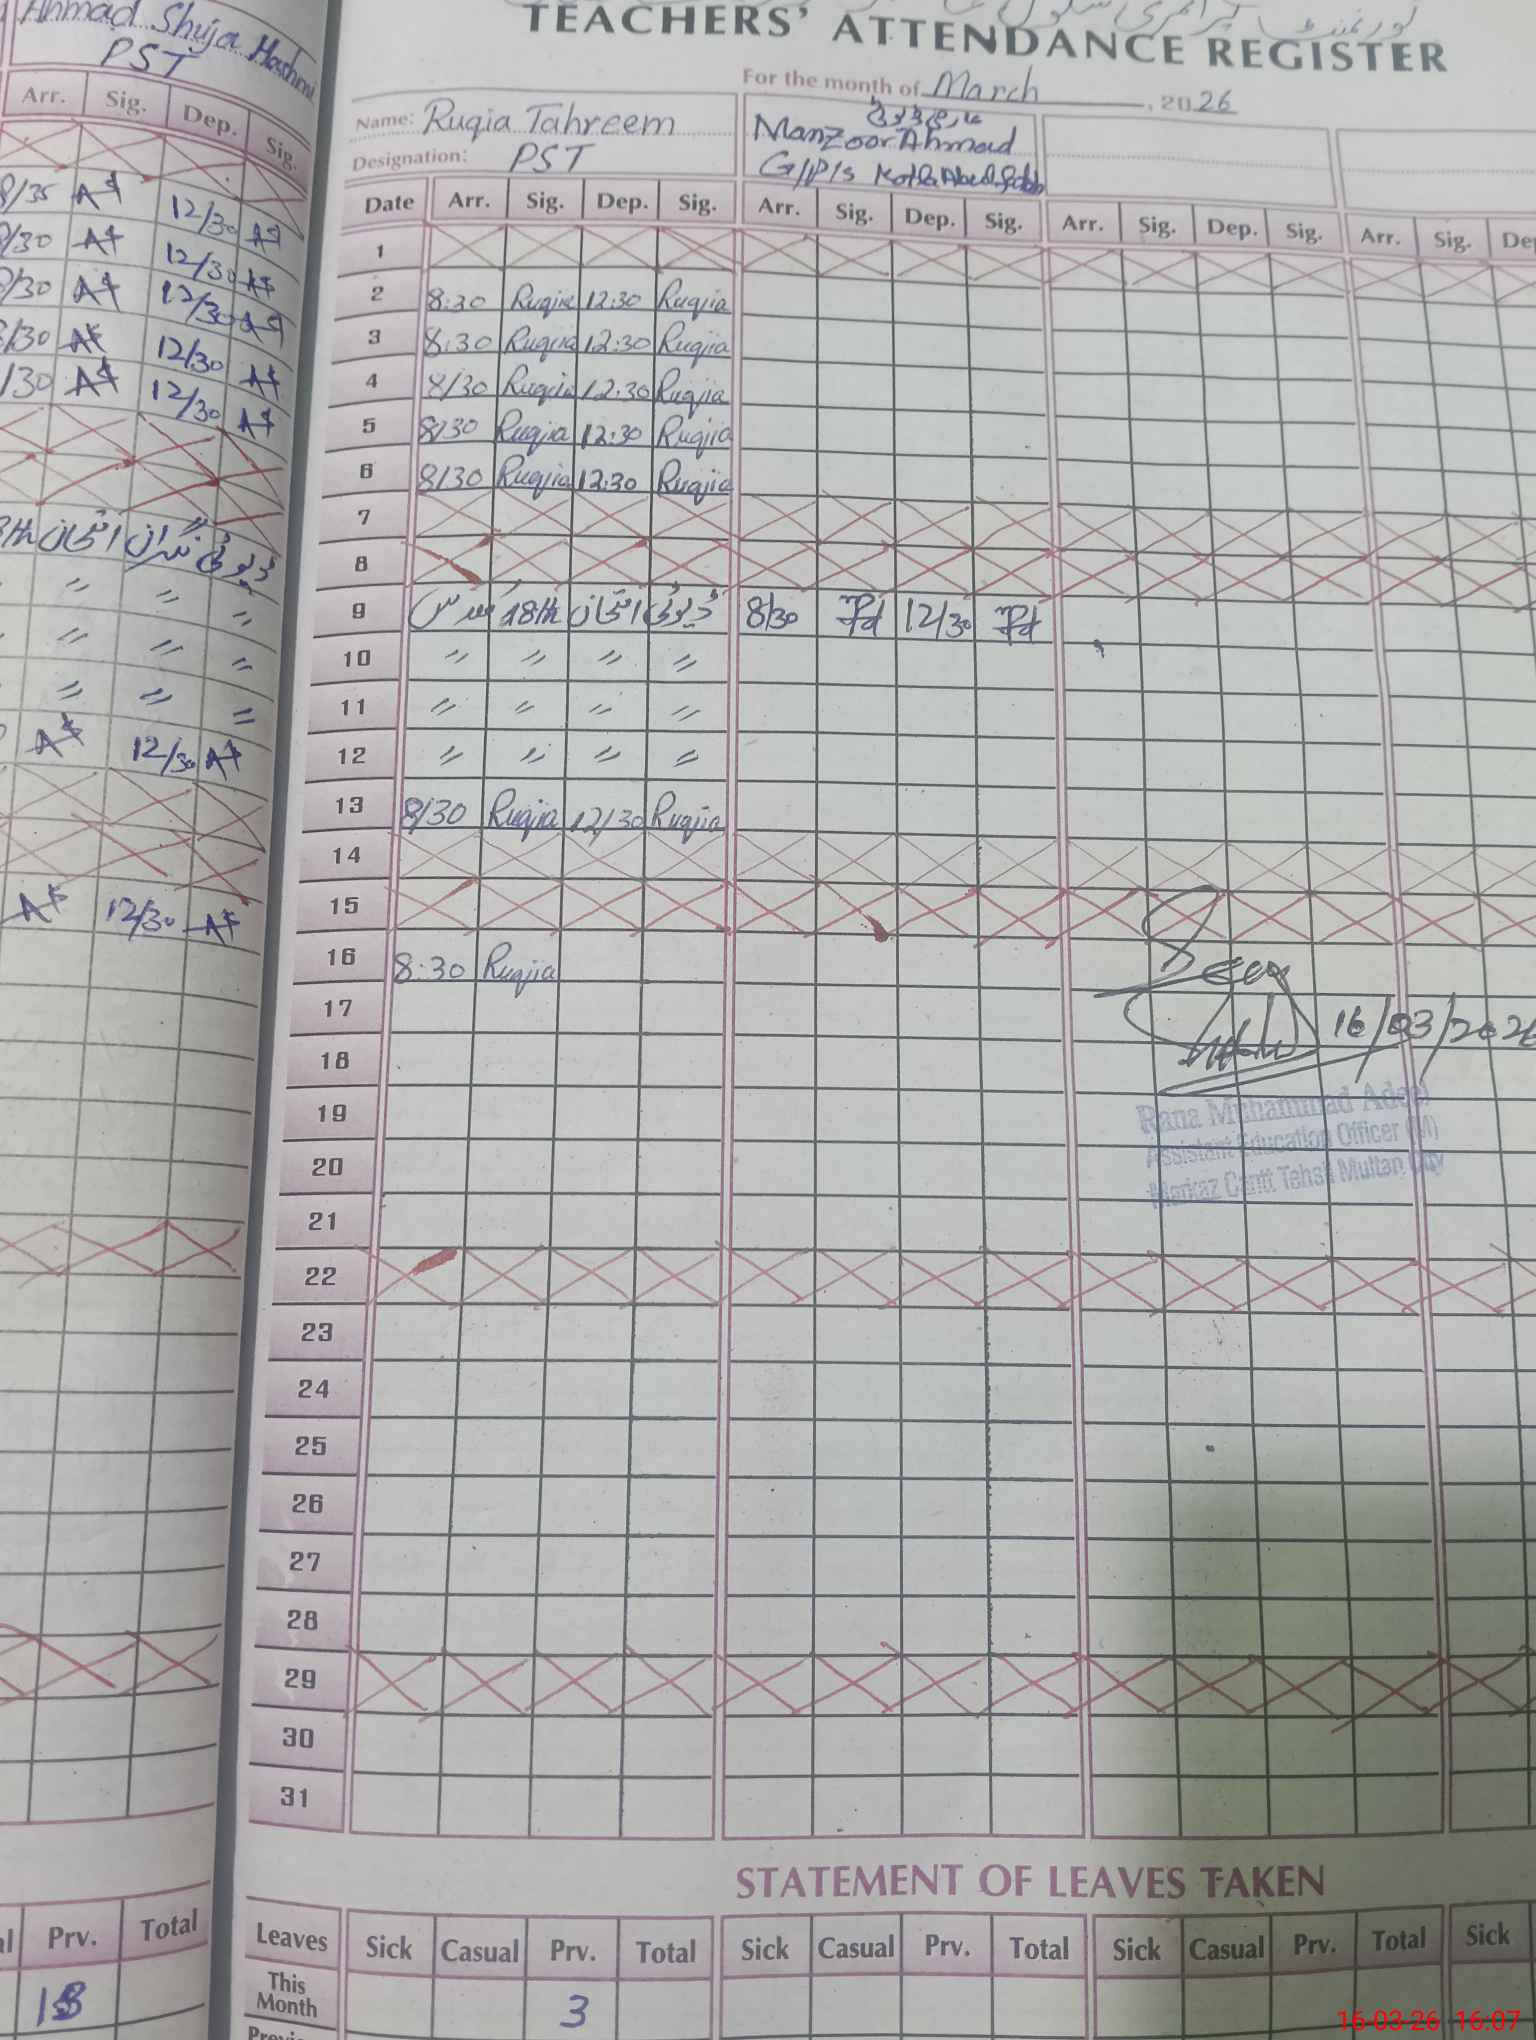 Ahmad Shuja Hashmi
PST
Arr. Sig. Dep. Sig.
8/35 12/30
8/30 12/30
8/30 12/30
8/30 12/30
8/30 12/30
8th امتحان نگران ڈیوٹی
〃 〃 〃
〃 〃 〃
〃 〃 〃
12/30
12/30
Prv. Total
گورنمنٹ پرائمری سکول
TEACHERS' ATTENDANCE REGISTER
For the month of March, 2026
Name: Ruqia Tahreem
Designation: PST
Manzoor Ahmad
G/P/s Kotla
Date Arr. Sig. Dep. Sig. Arr. Sig. Dep. Sig. Arr. Sig. Dep. Sig. Arr. Sig. Dep
1
2 8:30 Ruqia 12:30 Ruqia
3 8:30 Ruqia 12:30 Ruqia
4 8/30 Ruqia 12:30 Ruqia
5 8/30 Ruqia 12:30 Ruqia
6 8/30 Ruqia 12:30 Ruqia
7
8
9 ڈیوٹی امتحان 8th 8/30 12/30
10 〃 〃 〃 〃
11 〃 〃 〃 〃
12 〃 〃 〃 〃
13 8/30 Ruqia 12/30 Ruqia
14
15
16 8:30 Ruqia
Seen
17 16/03/2026
18
19
Rana Muhammad Adeel
Assistant Education Officer (M)
Markaz Cantt Tehsil Multan City
20
21
22
23
24
25
26
27
28
29
30
31
STATEMENT OF LEAVES TAKEN
Leaves Sick Casual Prv. Total Sick Casual Prv. Total Sick Casual Prv. Total Sick
This Month 3
16-03-26 16:07